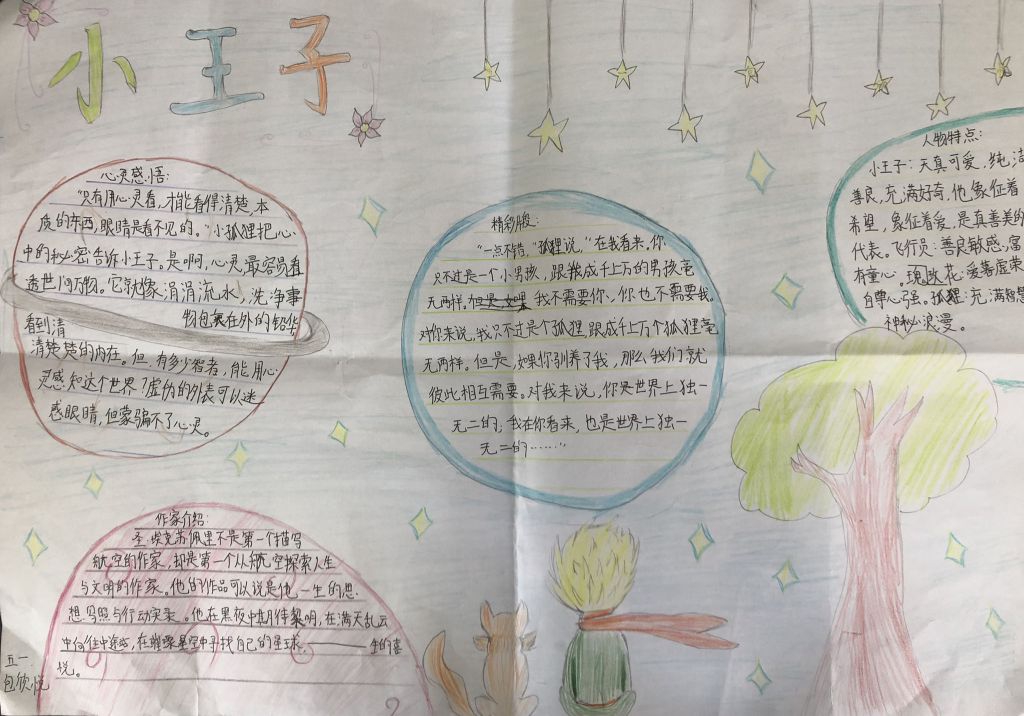 小王子
心灵感悟:
“只有用心灵看,才能看得清楚,本
质的东西,眼睛是看不见的。”小狐狸把心
中的秘密告诉小王子。是啊,心灵最容易看
透世间万物,它就像涓涓流水,洗净事
物包裹在外的铅华
看到清
清楚楚的内在。但有多少智者,能用心
灵感知这个世界?虚伪的外表可以迷
惑眼睛,但蒙骗不了心灵。
精彩片段:
“一点不错,”狐狸说,“在我看来,你
只不过是一个小男孩,跟成千上万的男孩毫
无两样。我不需要你、你也不需要我。
对你来说,我只不过是个狐狸,跟成千上万个狐狸毫
无两样。但是,如果你驯养了我,那么,我们就
彼此相互需要。对我来说,你是世界上独一
无二的;我在你看来,也是世界上独一
无二的……”
人物特点:
小王子:天真可爱,纯洁
善良,充满好奇,他象征着
希望,象征着爱,是真善美的
代表。飞行员:善良敏感,富
有童心。玫瑰花:爱慕虚荣
自尊心强。狐狸:充满智慧
神秘浪漫。
作家介绍:
圣·埃克苏佩里不是第一个描写
航空的作家,却是第一个从航空探索人生
与文明的作家。他的作品可以说是他一生的思
想写照与行动实录。他在黑夜中期待黎明,在满天乱云
中向往中途站,在璀璨星空中寻找自己的星球 生的喜
悦。
五一
包欣悦